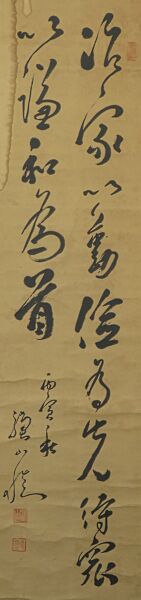 治家以勤儉為先待衆
以謙和為首
丙寅秋